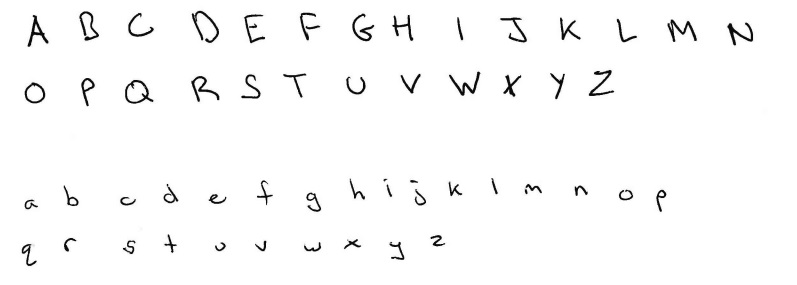 A B C D E F G H I J K L M N
O P Q R S T U V W X Y Z
a b c d e f g h i j k l m n o p
q r s t u v w x y z